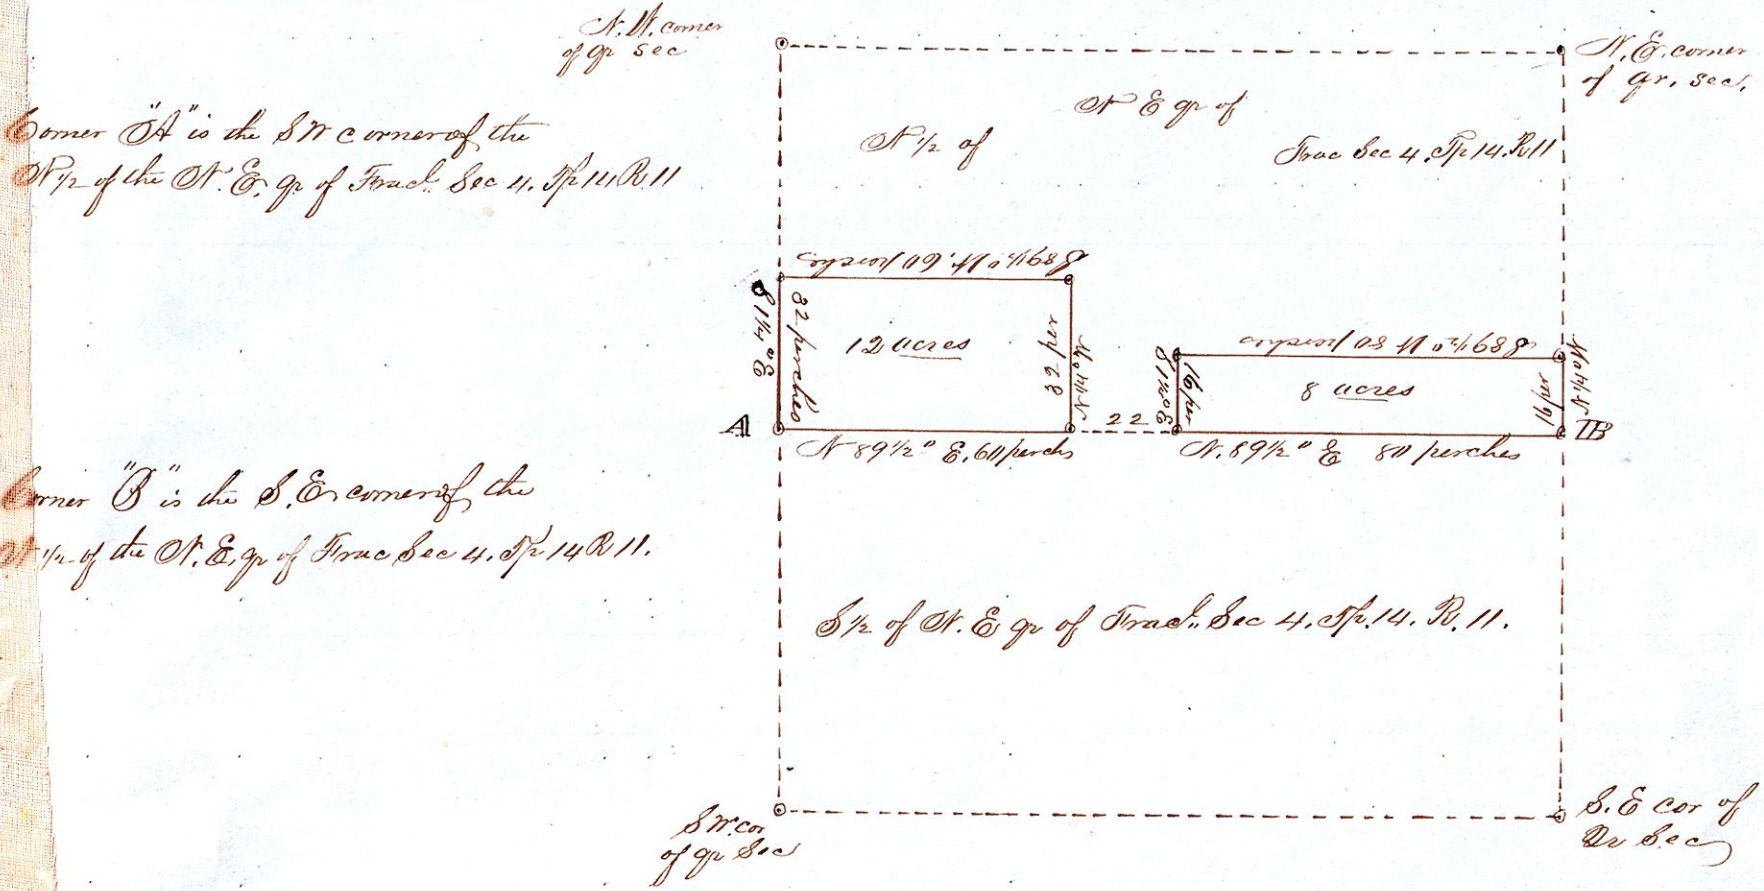 N. W. corner
of qr sec
N. E. corner
of qr. sec.
Corner "A" is the S W corner of the
N ½ of the N. E. qr of Fracl. Sec 4. Tp 14, R. 11
N E qr of
N ½ of
Frac Sec 4. Tp 14. R 11
S 89½° W. 60 perches
S 1¼° E
32 perches
12 acres
32 per
N 1¼° W
A
N 89½° E. 60 perchs
22
S 89½° W 80 perches
S 1¼° E
16 per
8 acres
16 per
N 1¼° W
B
N. 89½° E 80 perches
Corner "B" is the S. E corner of the
N ½ of the N. E. qr of Frac Sec 4. Tp 14 R 11.
S ½ of N. E qr of Fracl. Sec 4. Tp. 14. R. 11.
S W. cor
of qr Sec
S. E cor of
Qr Sec